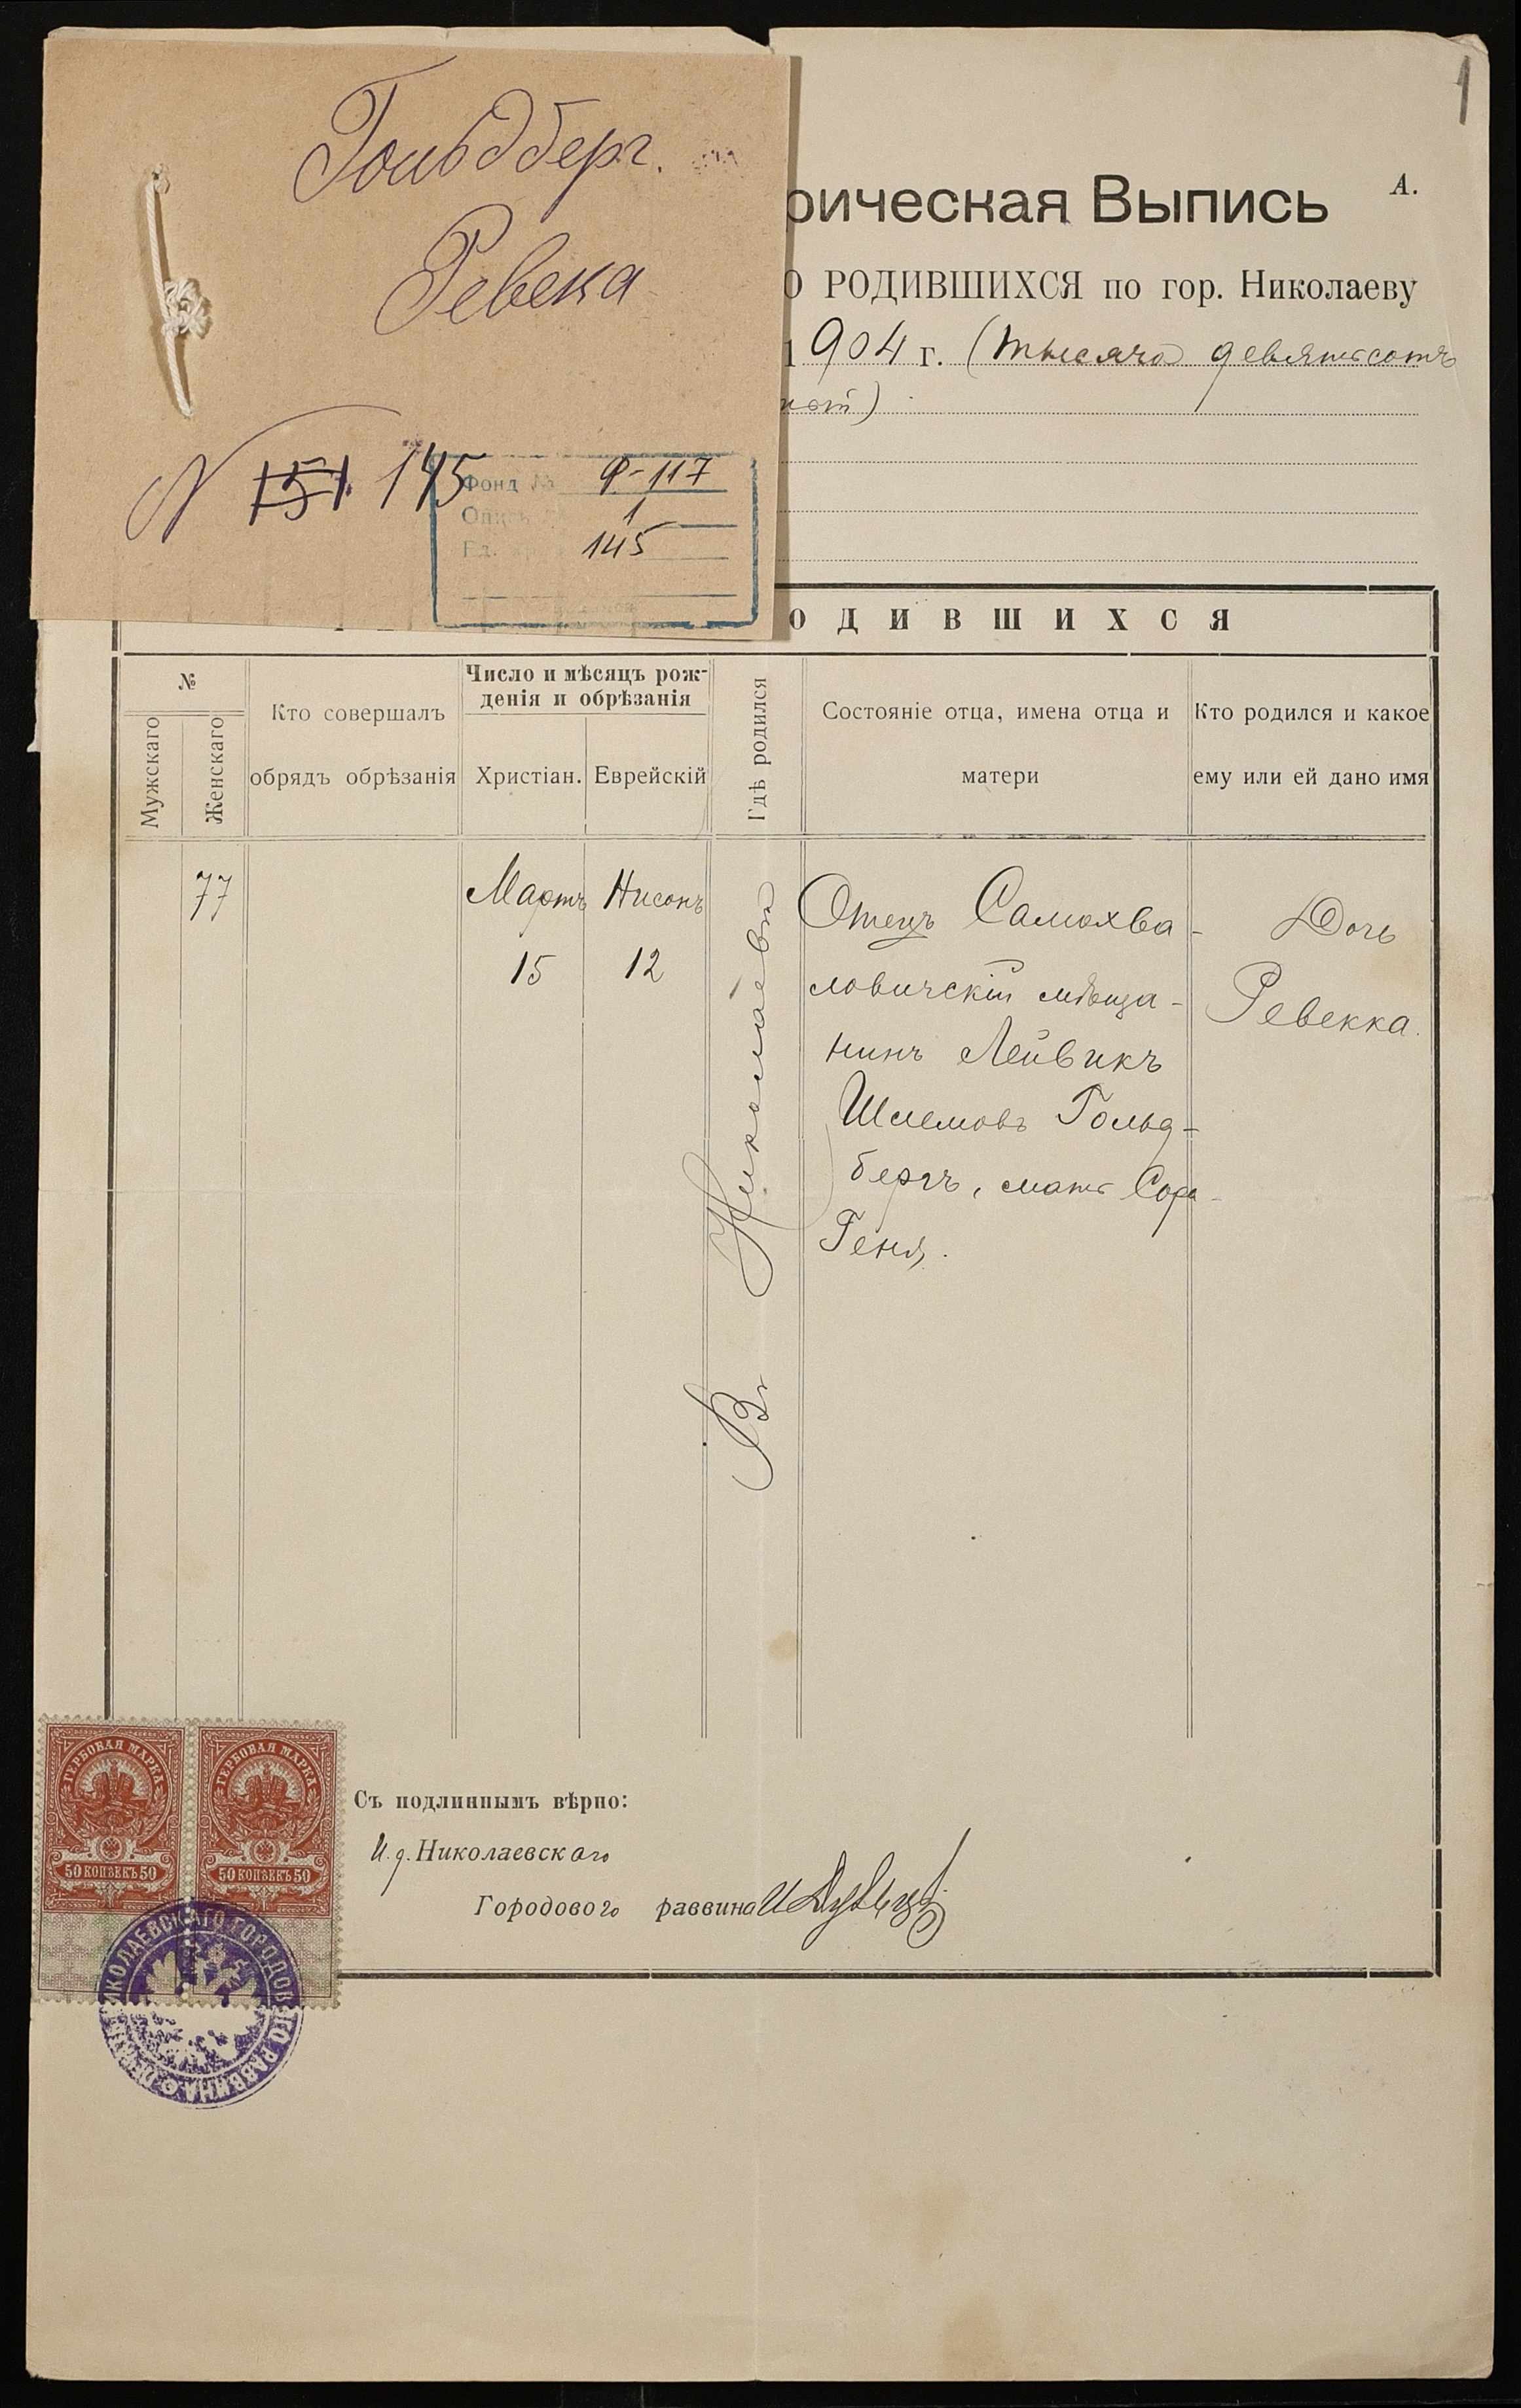 1
Гольдберг.
Ревека
N 151 145
Фонд № Ф-117
Опись 1
Ед. 145
А.
рическая Выпись
О РОДИВШИХСЯ по гор. Николаеву
1904 г. (тысяча девятьсотъ
тый)
ОДИВШИХСЯ
№
Мужскаго
Женскаго
Кто совершалъ
обрядъ обрѣзанія
Число и мѣсяцъ рож-
денія и обрѣзанія
Христіан.
Еврейскій
Гдѣ родился
Состояніе отца, имена отца и
матери
Кто родился и какое
ему или ей дано имя
77
Мартъ
15
Нисонъ
12
Въ Николаевѣ
Отецъ Самохва-
ловичскій мѣща-
нинъ Лейвикъ
Шлемовъ Гольд-
бергъ, мать Сора
Геня.
Дочь
Ревекка.
ГЕРБОВАЯ МАРКА
50 КОПѢЕКЪ 50
ГЕРБОВАЯ МАРКА
50 КОПѢЕКЪ 50
Съ подлиннымъ вѣрно:
И. д. Николаевскаго
Городового раввина
НИКОЛАЕВСКАГО ГОРОДОВОГО РАВВИНА